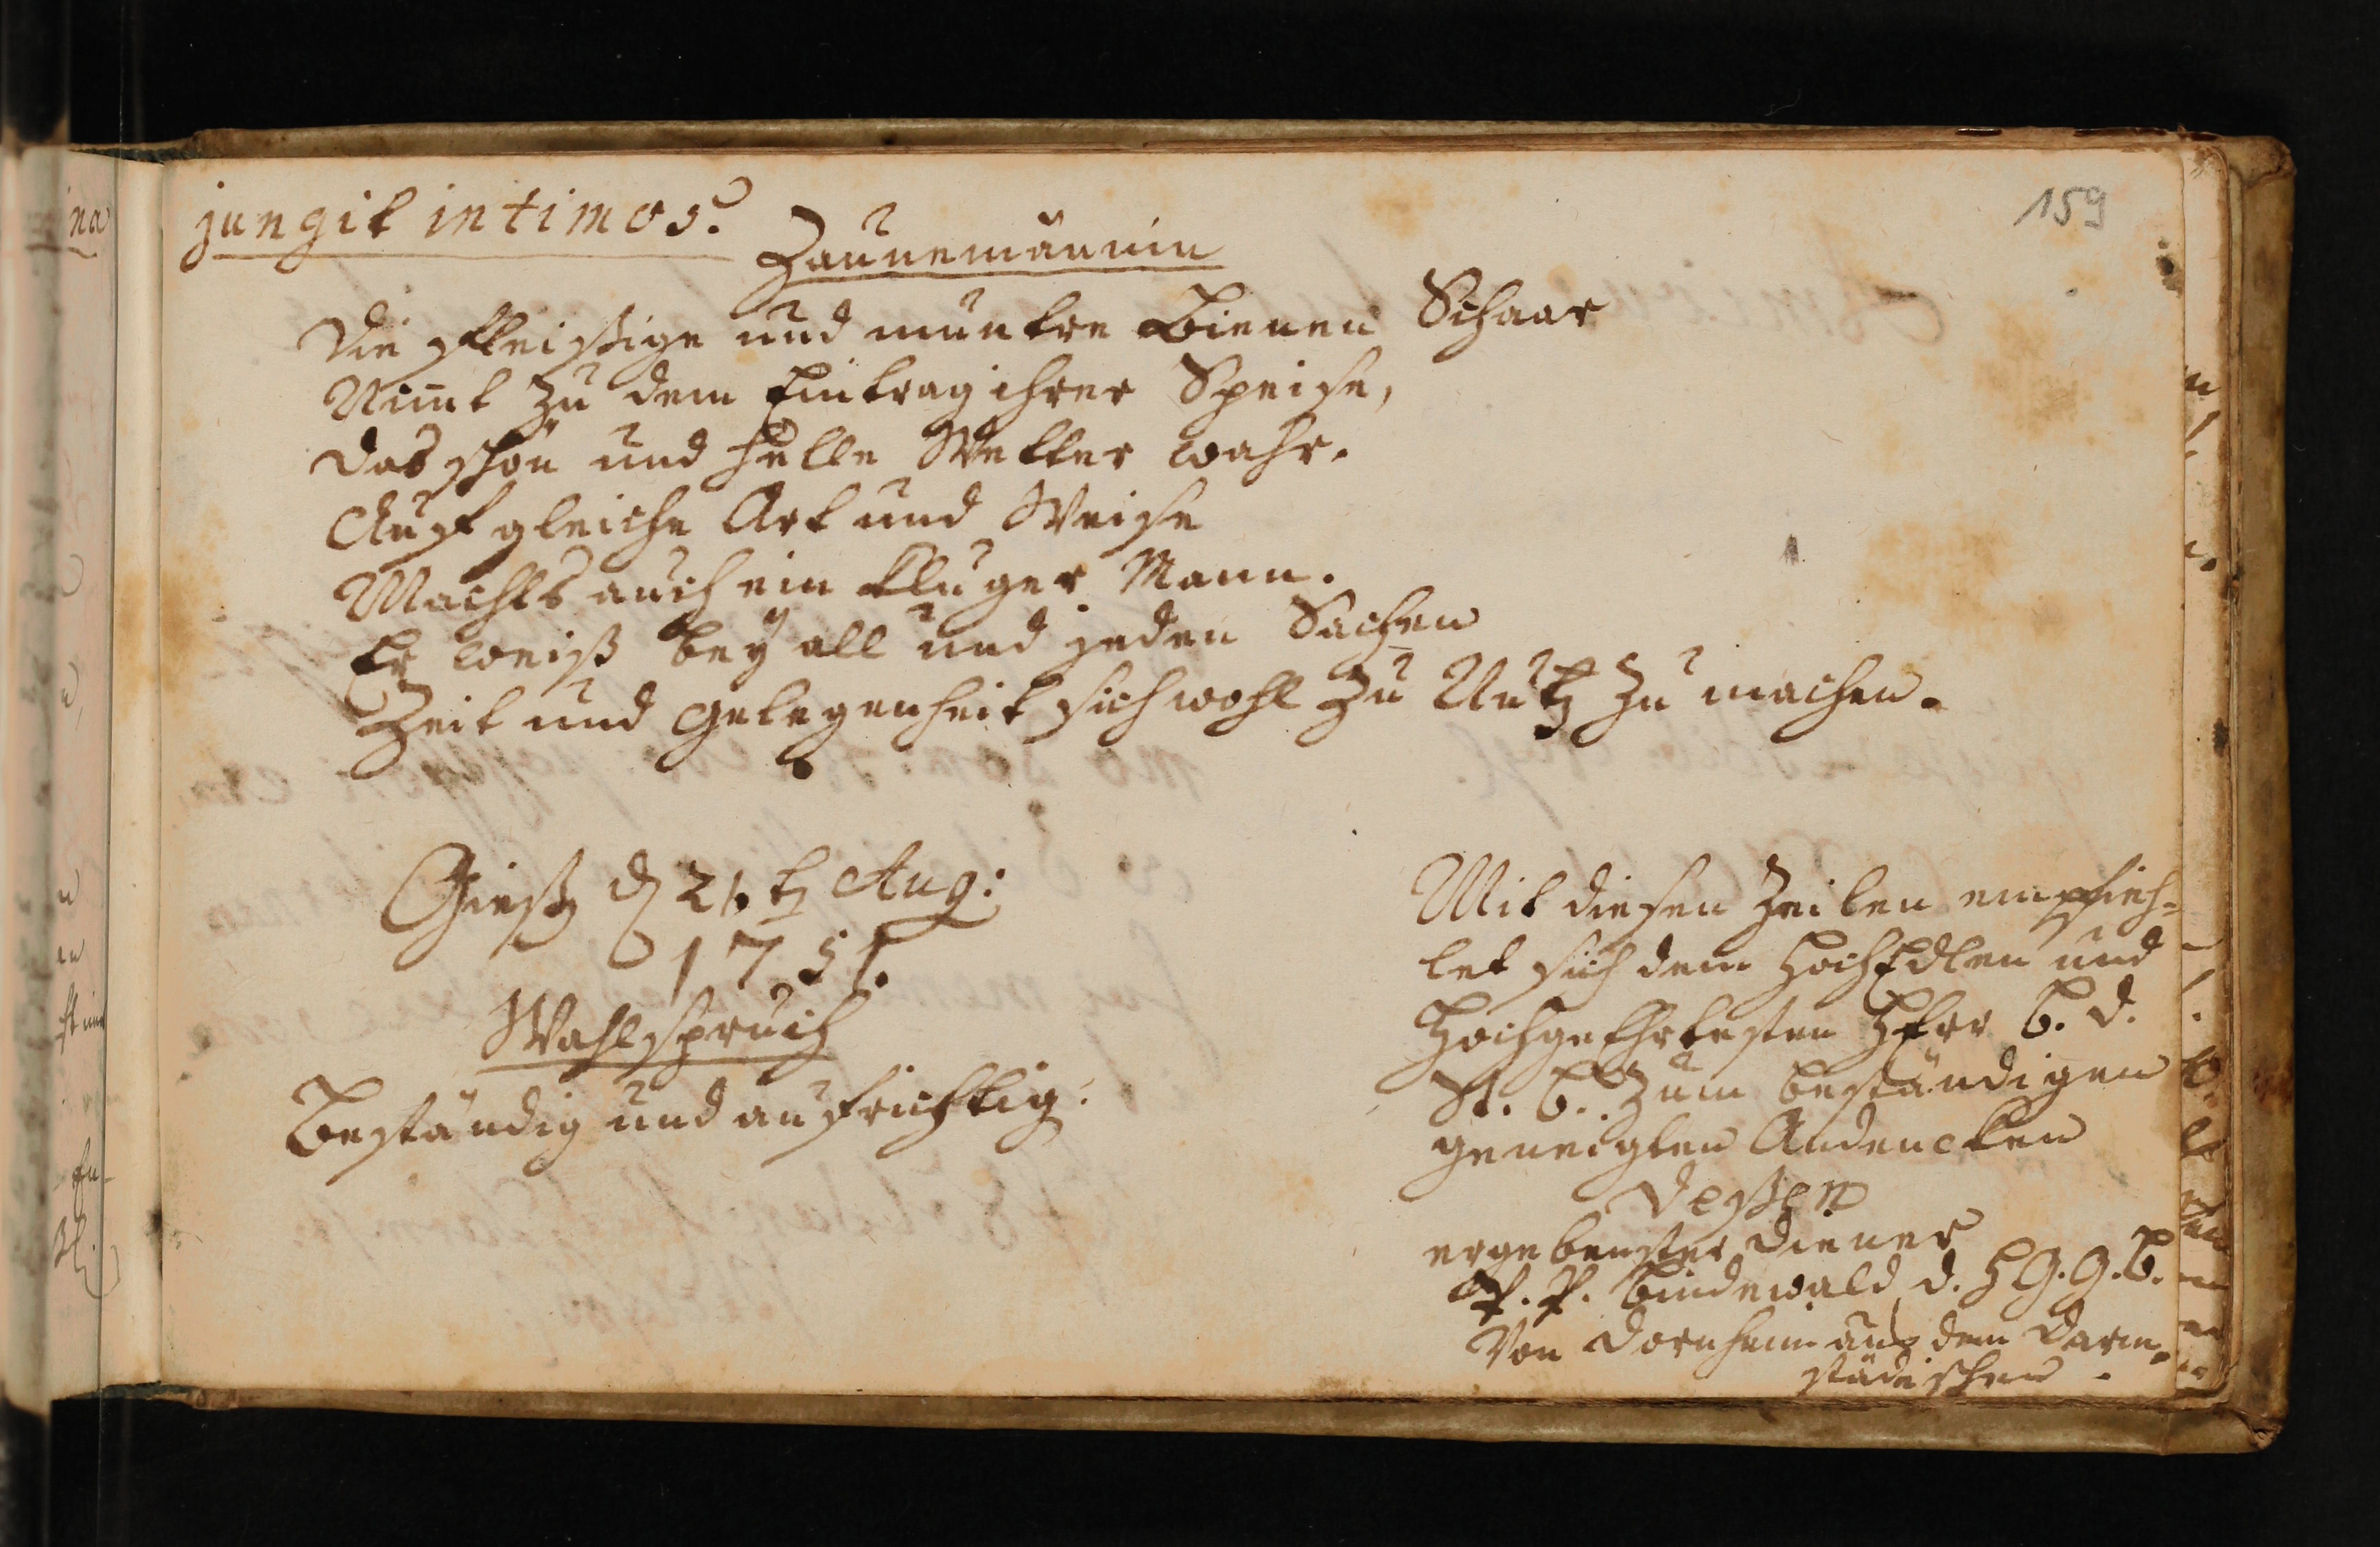 159
jungit intimos.
Zäunemännin
Die fleißige und muntre Bienen Schaar
Nim̄t zu dem Eintrag ihrer Speise,
das schön und helle Wetter wahr.
Auf gleiche Art und Weise
Machts auch ein kluger Mann.
Er weiß bey all und jeden Sachen
Zeit und gelegenheit sich wohl zu Nutz zu machen.
Gieß d 21.t Aug:
1751.
Wahlspruch
Beständig und aufrichtig.
Mit diesen Zeilen empfieh-
let sich dem HochEdlen und
HochgeEhrtesten HErr B. d.
St. B. Zum beständigen
geneigten Andencken
deßen
ergebenster diener
P. P. Bindewald d. H G. G. B.
Von Dornheim aus dem Darm-
städischen.